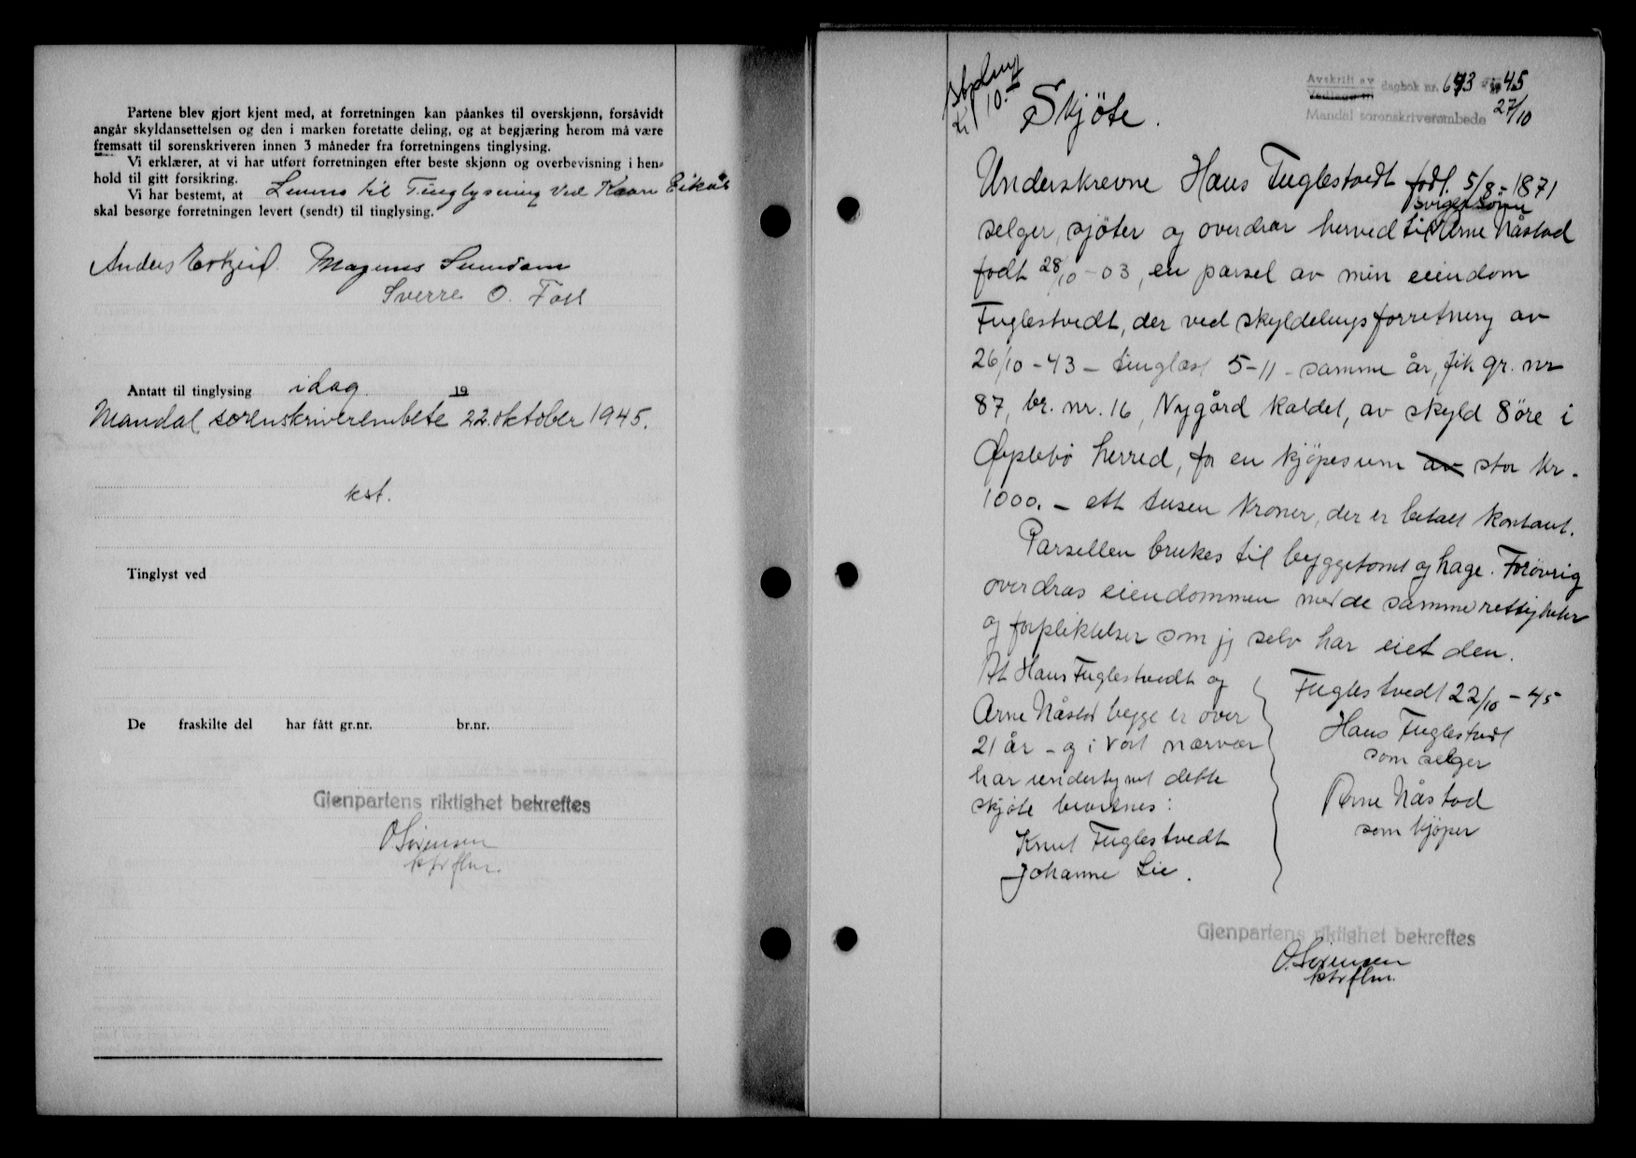 Partene blev gjort kjent med, at forretningen kan påankes til overskjønn, forsåvidt
angår skyldansettelsen og den i marken foretatte deling, og at begjæring herom må være
fremsatt til sorenskriveren innen 3 måneder fra forretningens tinglysing.
Vi erklærer, at vi har utført forretningen efter beste skjønn og overbevisning i hen-
hold til gitt forsikring.
Vi har bestemt, at til Tinglysning ved Kaare Eikås
skal besørge forretningen levert (sendt) til tinglysing.
Anders Magnus Sundam
Sverre O. Foss
Antatt til tinglysing idag 19
Mandal sorenskriverembete 22. oktober 1945.
kst.
Tinglyst ved
De fraskilte del har fått gr.nr. br.nr.
Gjenpartens riktighet bekreftes
O Sörensen
ktrflm.
kr 10.-
Avskrift av dagbok nr. 643 45
Mandal sorenskriverembede 27/10
Skjöte.
Underskrevne Hans Fuglestvedt födt. 5/8-1871
svigersönn
selger, sjöter og overdrar herved til Arne Nåstad
födt 28/10-03, en parsel av min eiendom
Fuglestvedt, der ved skyldelingsforretning av
26/10-43 - tinglæst 5-11 - samme år, fik gr. nr
87, br. nr. 16, Nygård kaldet, av skyld 8 öre i
Öyslebö herred, for en kjöpesum av stor kr.
1000.- ett tusen kroner, der er betalt kontant.
Parsellen brukes til byggetomt og hage. Forövrig
overdras eiendommen med de samme rettigheter
og forpliktelser som jeg selv har eiet den.
At Hans Fuglestvedt og
Arne Nåstad begge er over
21 år - og i vort nærvær
har undertegnet dette
skjöte bevitnes:
Knut Fuglestvedt
Johanne Lie.
Fuglestvedt 22/10-45
Hans Fuglestvedt
som selger
Arne Nåstad
som kjöper
Gjenpartens riktighet bekreftes
O. Sörensen
ktrflm.